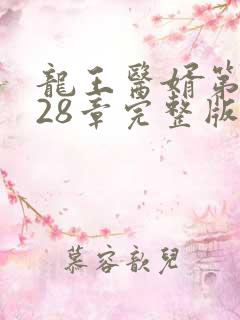 龍王醫婿第
28章完整版
慕容歆兒